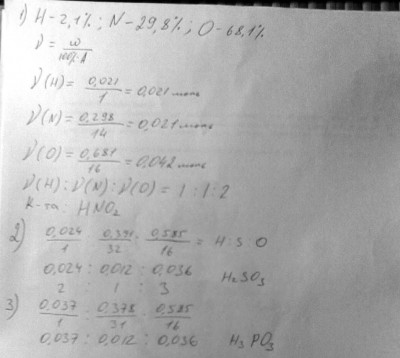 1) H - 2,1%; N - 29,8%; O - 68,1%
ν = ω / 100%·A
ν(H) = 0,021 / 1 = 0,021 моль
ν(N) = 0,298 / 14 = 0,021 моль
ν(O) = 0,681 / 16 = 0,042 моль
ν(H) : ν(N) : ν(O) = 1 : 1 : 2
К-та : HNO2
2) 0,024 / 1 : 0,391 / 32 : 0,585 / 16 = H : S O
0,024 : 0,012 : 0,036
2 : 1 : 3 H2SO3
3) 0,037 / 1 : 0,378 / 31 : 0,585 / 16
0,037 : 0,012 : 0,036 H3PO3